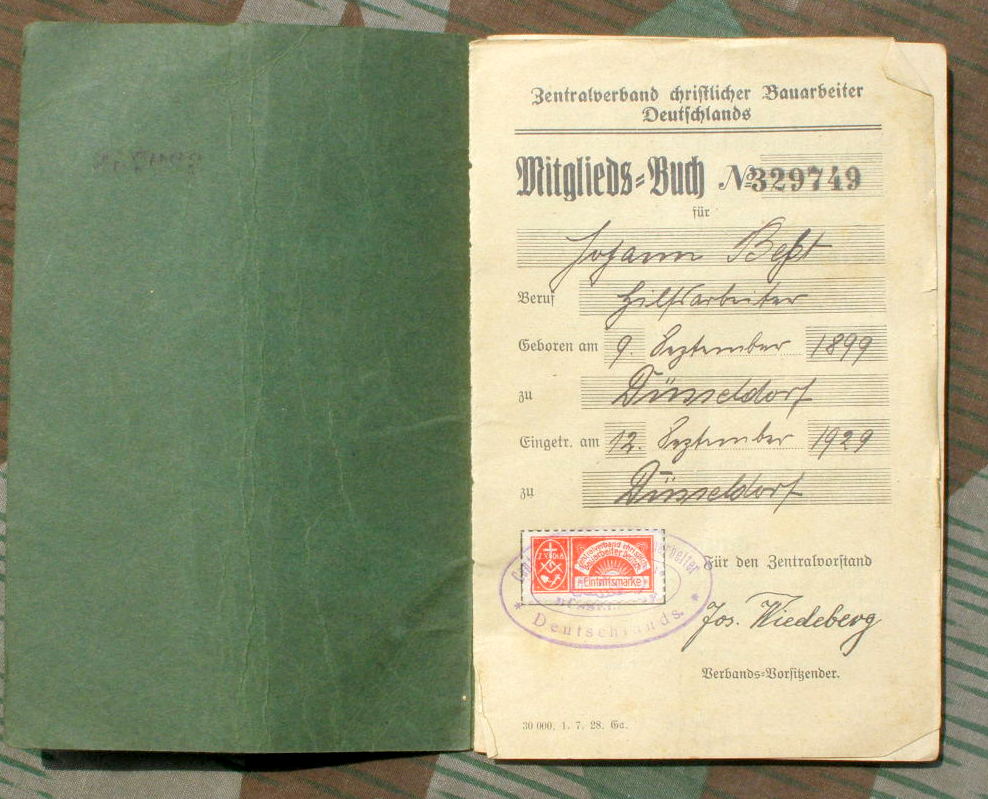 Zentralverband christlicher Bauarbeiter
Deutschlands
Mitglieds=Buch № 329749
für
Johann Best
Beruf Hilfsarbeiter
Geboren am 9. September 1899
zu Düsseldorf
Eingetr. am 12. September 1929
zu Düsseldorf
Eintrittsmarke
Deutschlands.
Für den Zentralvorstand
Jos. Wiedeberg
Verbands=Vorsitzender.
30 000. 1. 7. 28. Ga.